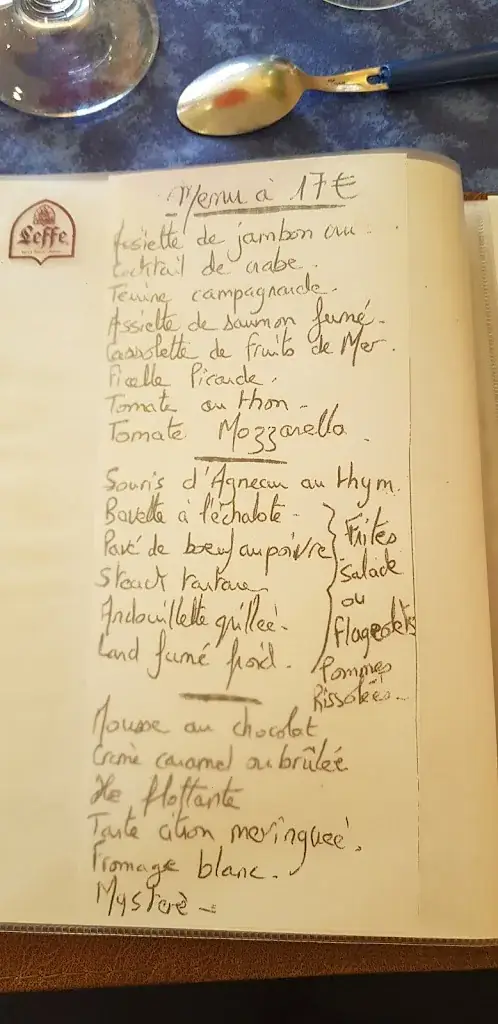 Leffe
Menu à 17€
Assiette de jambon cru.
Cocktail de crabe.
Terrine campagnarde.
Assiette de saumon fumé.
Cassolette de fruits de Mer.
Ficelle Picarde.
Tomate au thon.
Tomate Mozzarella.
Souris d'Agneau au thym.
Bavette à l'échalote.
Pavé de boeuf au poivre
Steack tartare
Andouillette grillée.
Lard fumé froid.
Frites
Salade
ou
flageolets
Pommes
Rissolées.
Mousse au chocolat
Crème caramel ou brûlée
Ile flottante
Tarte citron meringueé.
Fromage blanc.
Mysterè